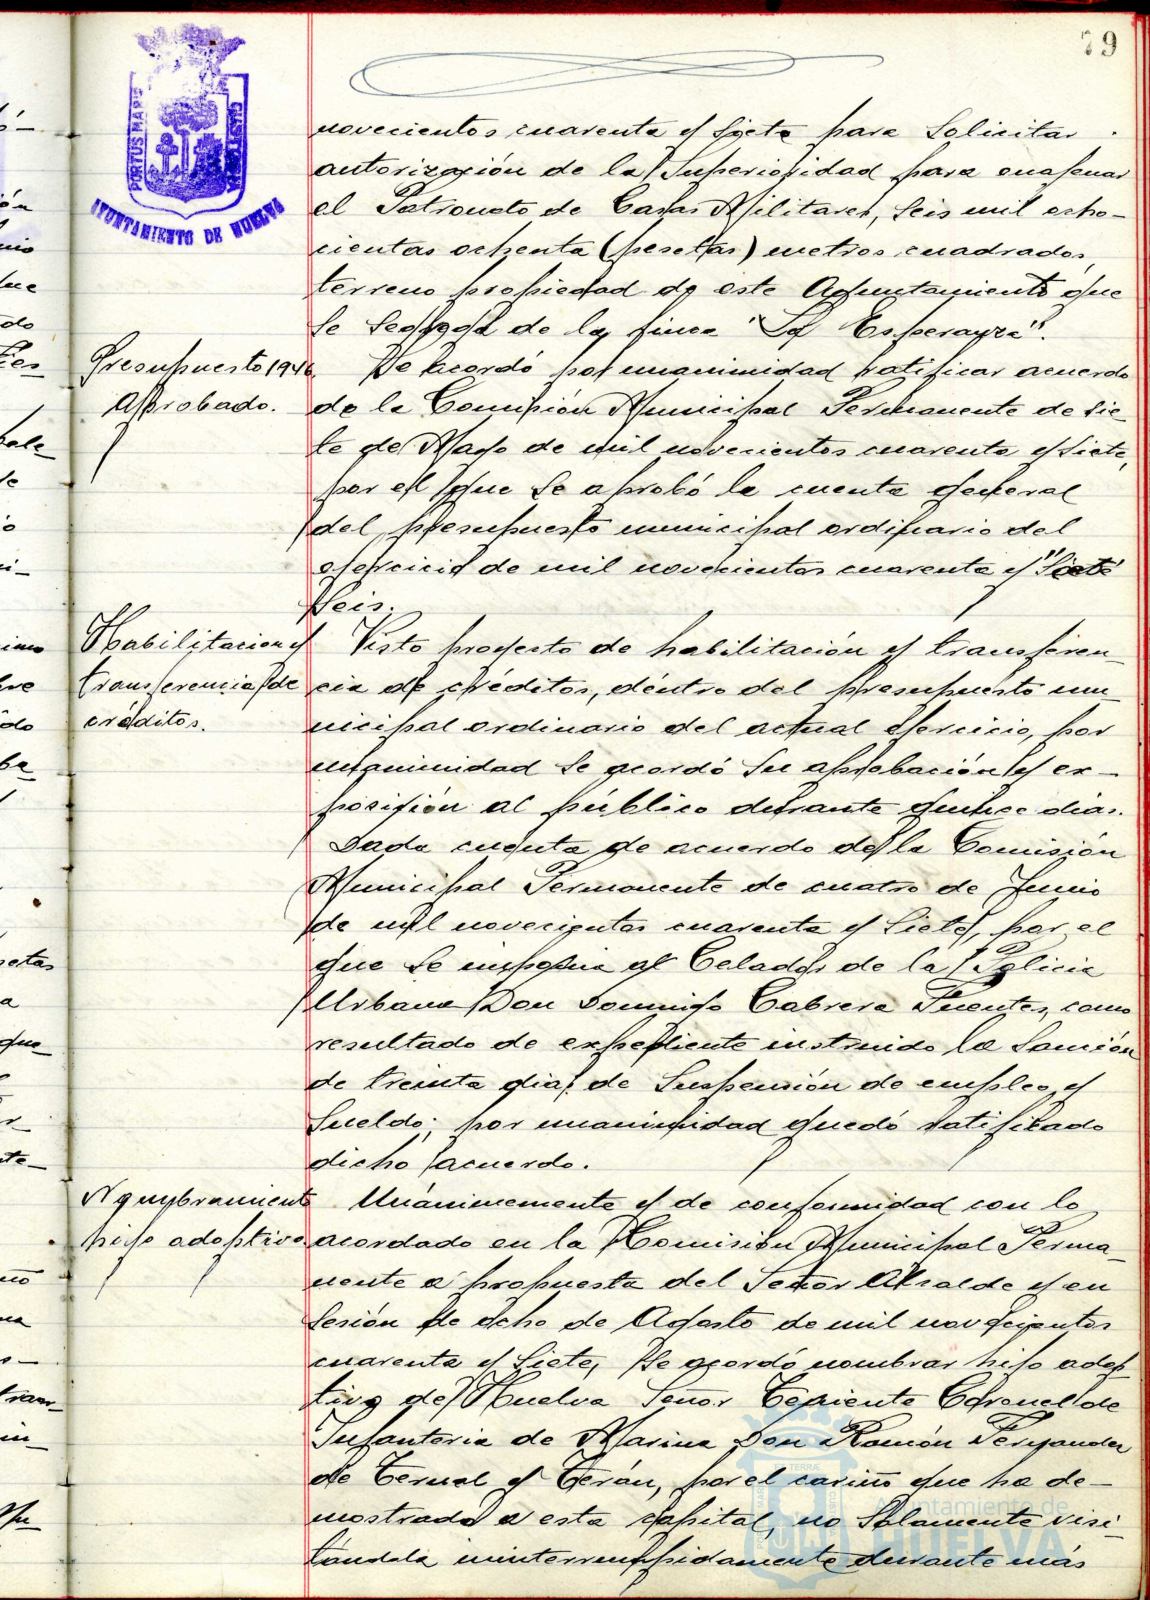 79
PORTUS MARIS
AYUNTAMIENTO DE HUELVA
novecientos cuarenta y siete para solicitar
autorización de la Superioridad para enajenar
el Patronato de Casas Militares, seis mil ocho-
cientas ochenta (pesetas) metros cuadrados,
terreno propiedad de este Ayuntamiento que
se segrega de la finca "La Esperanza".
Presupuesto 1946.
Aprobado.
Se acordó por unanimidad ratificar acuerdo
de la Comisión Municipal Permanente de sie-
te de Mayo de mil novecientos cuarenta y siete,
por el que se aprobó la cuenta general
del presupuesto municipal ordinario del
ejercicio de mil novecientos cuarenta y "siete"
seis.
Habilitacion y
transferencia de
créditos.
Visto proyecto de habilitación y transferen-
cia de créditos, déntro del presupuesto mu-
nicipal ordinario del actual ejercicio, por
unanimidad se acordó su aprobación y ex-
posición al público durante quince dias.
Dada cuenta de acuerdo de la Comisión
Municipal Permanente de cuatro de Junio
de mil novecientos cuarenta y siete, por el
que se imponia al Celador de la Policia
Urbana Don Domingo Cabrera Fuentes, como
resultado de expediente instruido la sanción
de treinta dias de suspensión de empleo y
sueldo; por unanimidad quedó ratificado
dicho acuerdo.
Nombramiento
hijo adoptivo
Unánimemente y de conformidad con lo
acordado en la Comisión Municipal Perma-
nente a propuesta del Señor Alcalde y en
sesión de ocho de Agosto de mil novecientos
cuarenta y siete, se acordó nombrar hijo adop
tivo de Huelva Señor Teniente Coronel de
Infanteria de Marina Don Ramón Fernandez
de Teruel y Terán, por el cariño que ha de-
mostrado a esta capital, no solamente visi-
tandola ininterrumpidamente durante más
Ayuntamiento de
HUELVA